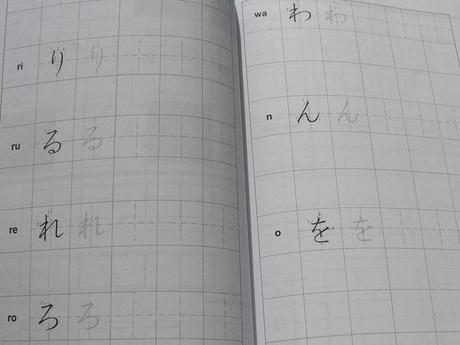 ri り り
ru る る
re れ れ
ro ろ ろ
wa わ わ
n ん ん
o を を